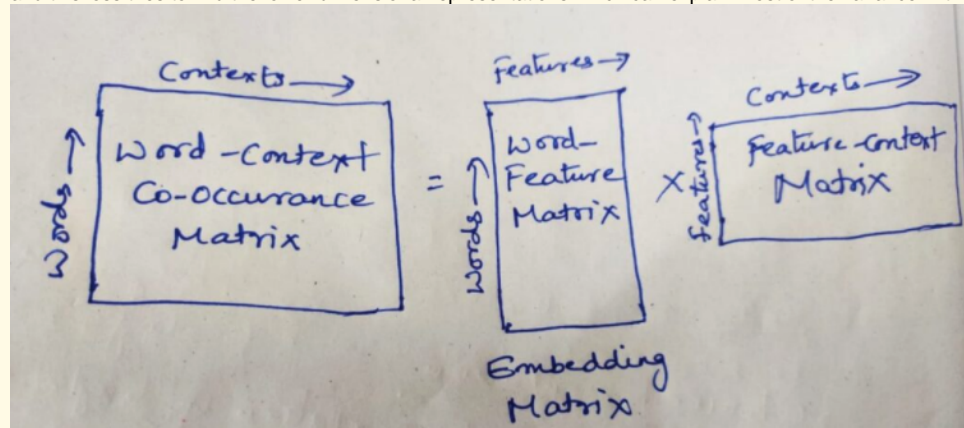 Contexts →
Words →
Word-Context
Co-Occurance
Matrix
=
Features →
Words →
Word-
Feature
Matrix
Embedding
Matrix
X
Contexts →
Features →
Feature-Context
Matrix